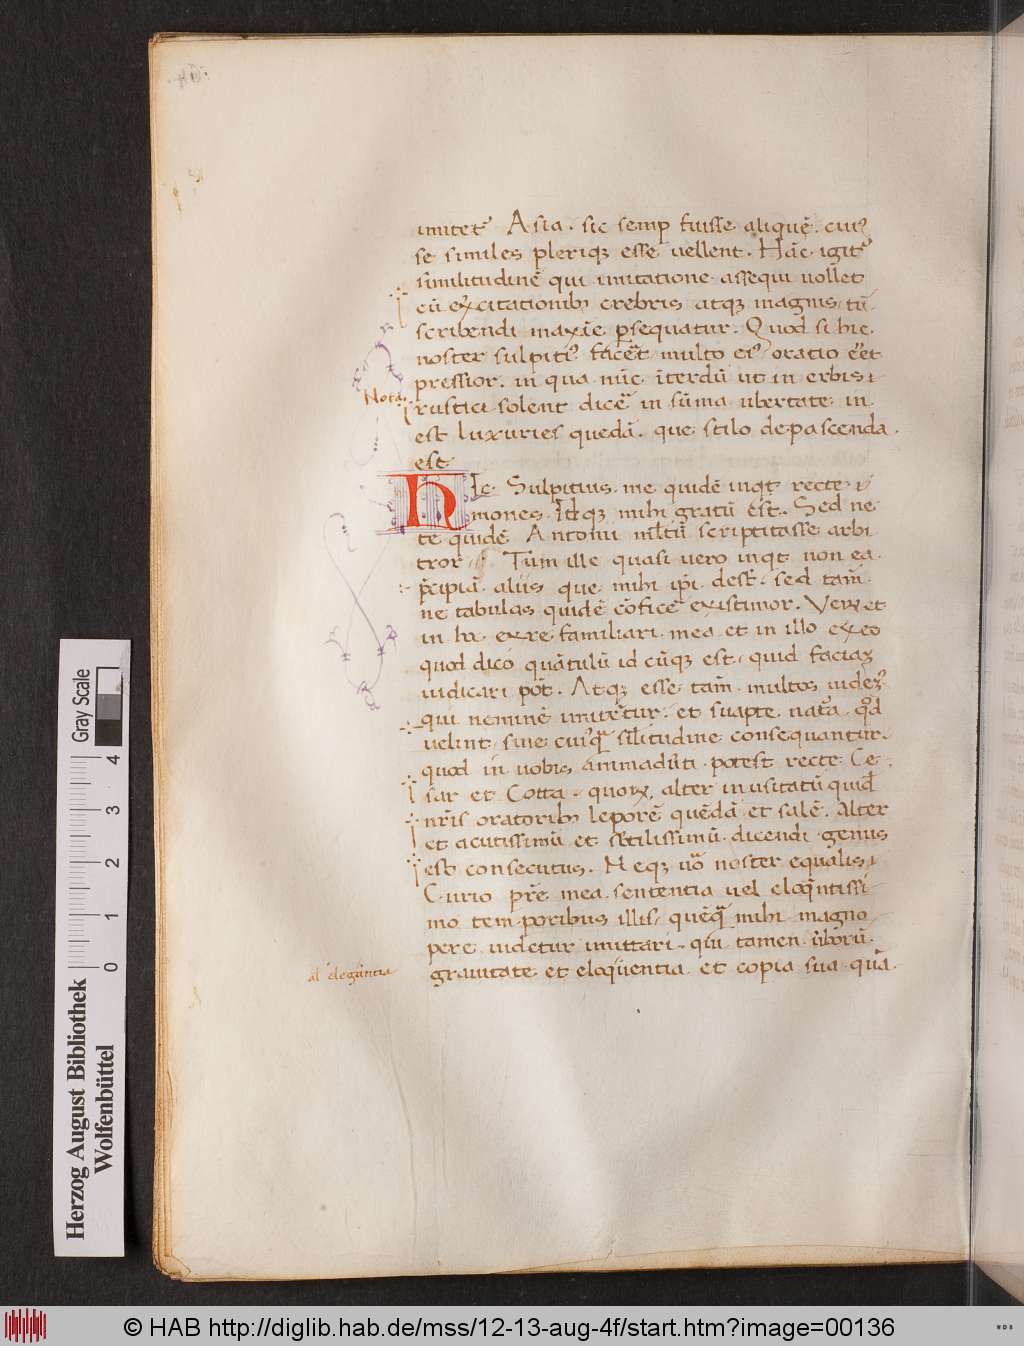 imitet᷒ Asia. sic semp fuisse aliquē. cui᷒
se similes pleriqꝫ esse uellent. Hāc igit᷒
similitudinē qui imitatione assequi uollet
cū exercitationib; crebris atqꝫ magnis tū
scribendi maxīe ꝑsequatur. Quod si hic
noster sulpiti᷒ facēt multo ei᷒ oratio eēt
pressior. in qua nūc īterdū ut in erbis
Nota rustici solent dicē in sūma ubertate in
est luxuries quedā. que stilo depascenda
est
Hic Sulpitius me quidē inqt recte
mones. Idqꝫ mihi gratū est. Sed ne
te quidē Antoni mltū scriptitasse arbi
tror. Tum ille quasi uero inqt non ea
p̄cipiā aliis que mihi ipi. dest. sed tam̄
ne tabulas quidē cōficē existimor. Veꝝ et
in hac ex re familiari mea et in illo ex eo
quod dico quātulū id cūqꝫ est, quid faciaꝫ
iudicari pōt. Atqꝫ esse tam̄ multos uidem᷒
qui neminē imitētur. et suapte natā qd
uelint, sine cui᷒qꝫ silitudine consequantur.
quod in uobis animaduti potest recte Ce
sar et Cotta. quoꝝ alter inusitatū quid
nr̄is oratorib; leporē quēdā et salē. Alter
et acutissimū et sbtilissimū dicendi genus
est consecutus. Neqꝫ uō noster equalis
Curio pr̄e mea sententia uel eloqntissi
mo temporibus illis, quēqꝫ mihi magno
pere uidetur imittari. qui tamen ūborū
grauitate et eloquentia et copia sua quā
al elegantia
Herzog August Bibliothek
Wolfenbüttel
Gray Scale
0 1 2 3 4
© HAB http://diglib.hab.de/mss/12-13-aug-4f/start.htm?image=00136